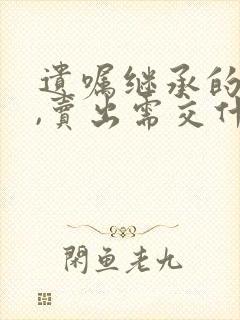 遺嘱继承的
,賣出需交什
閑鱼老九